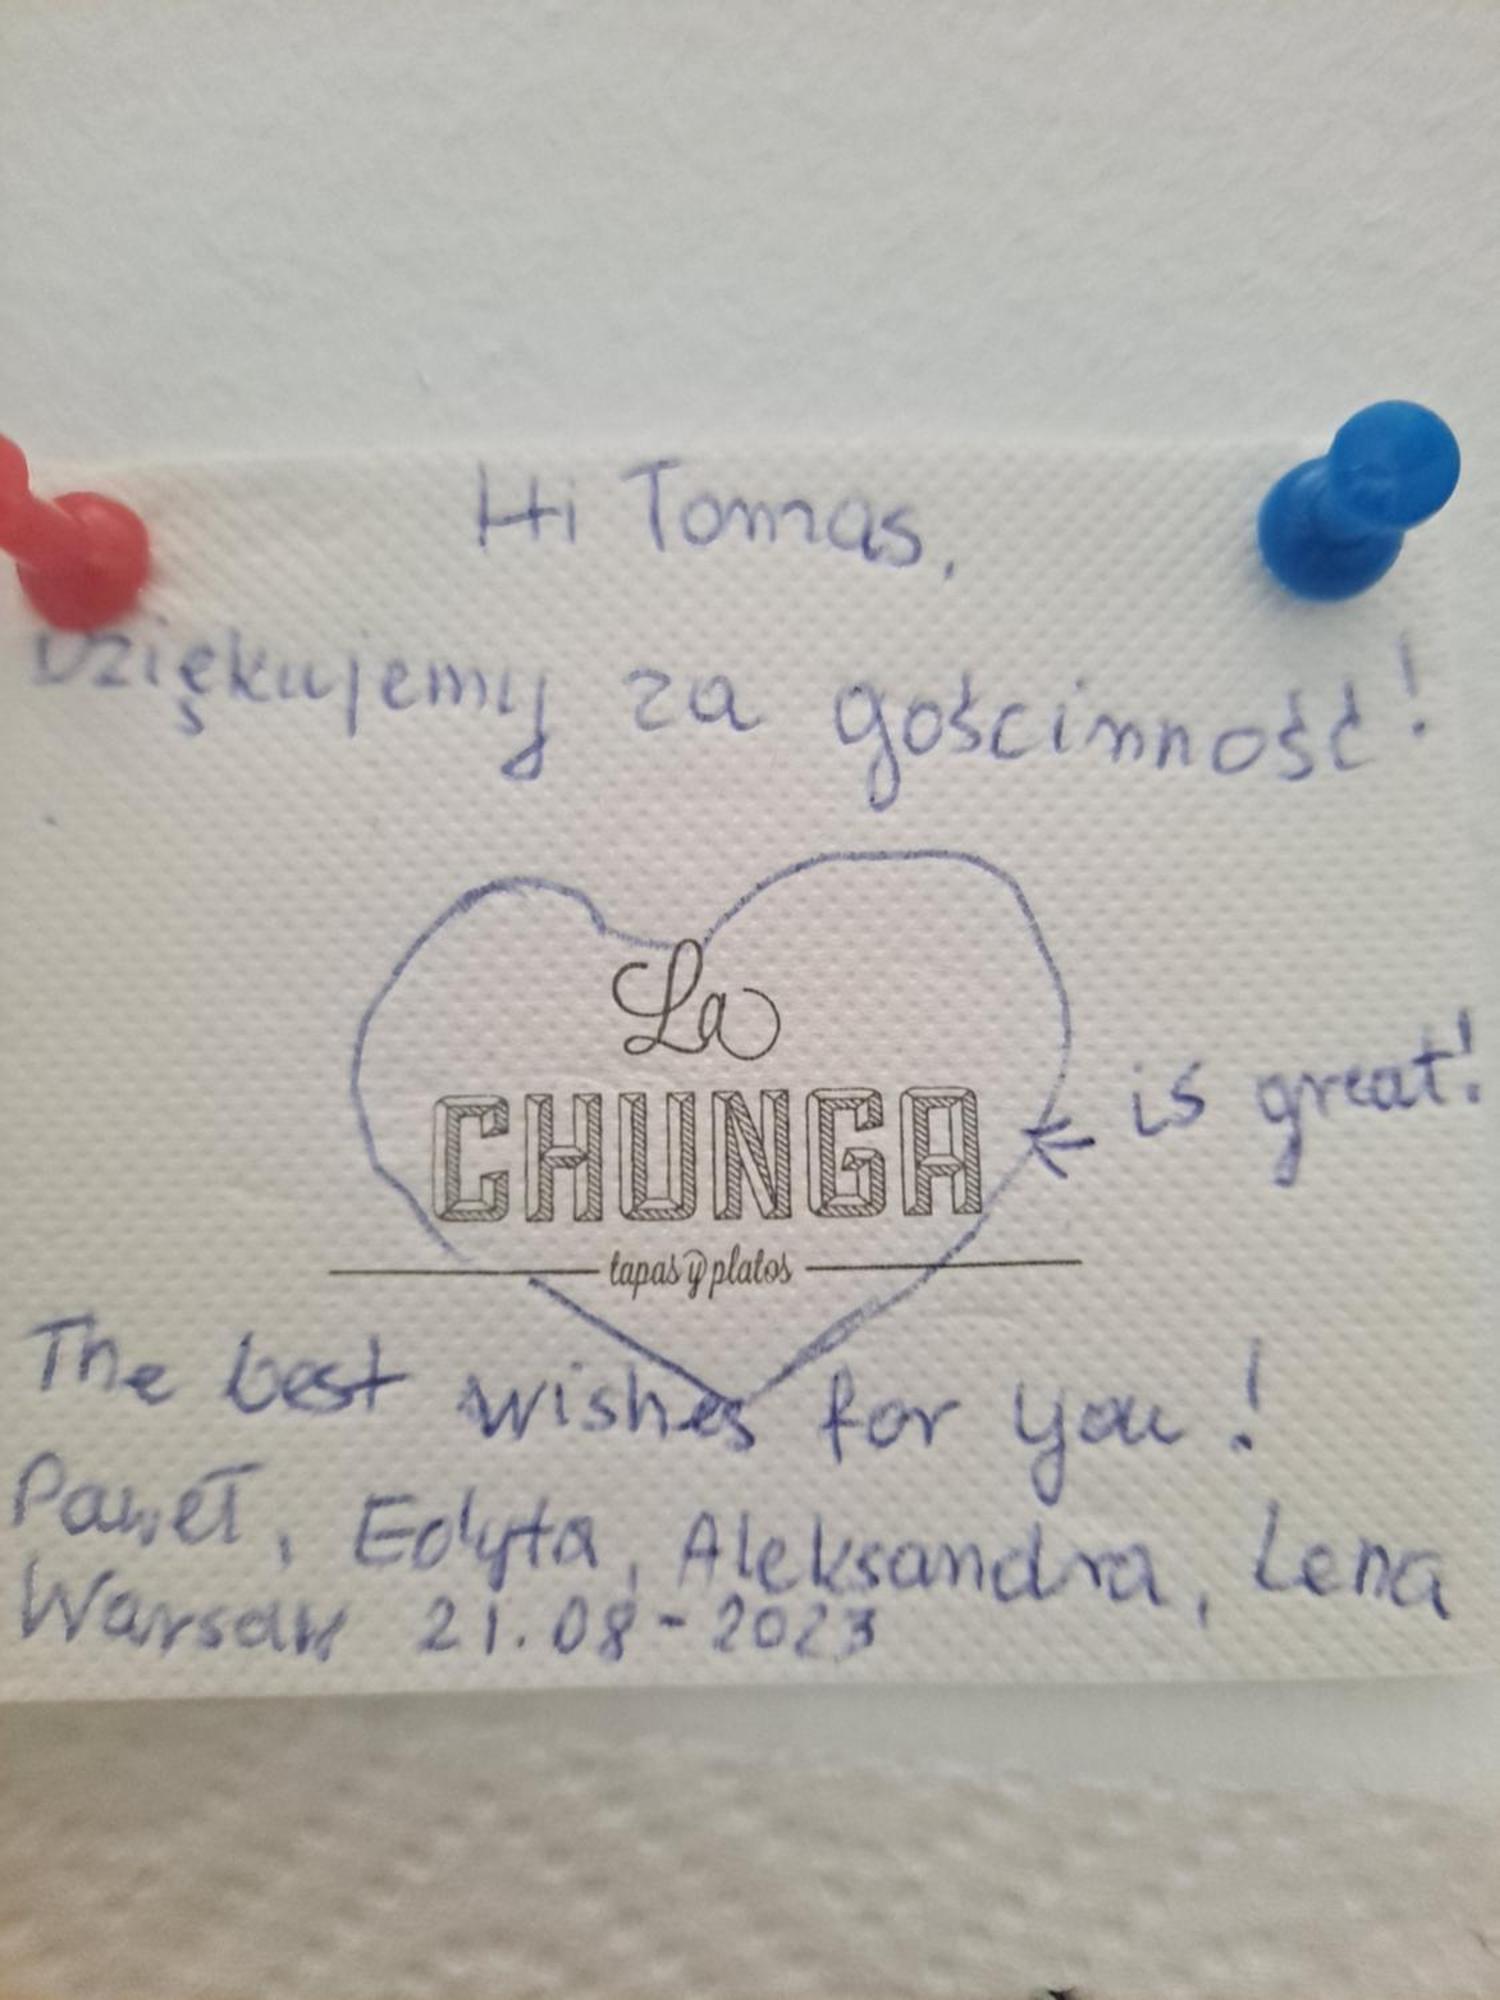 Hi Tomas,
Dziękujemy za gościnność!
La
CHUNGA
is great!
tapas y platos
The best wishes for you!
Paweł, Edyta, Aleksandra, Lena
Warsaw 21.08-2023